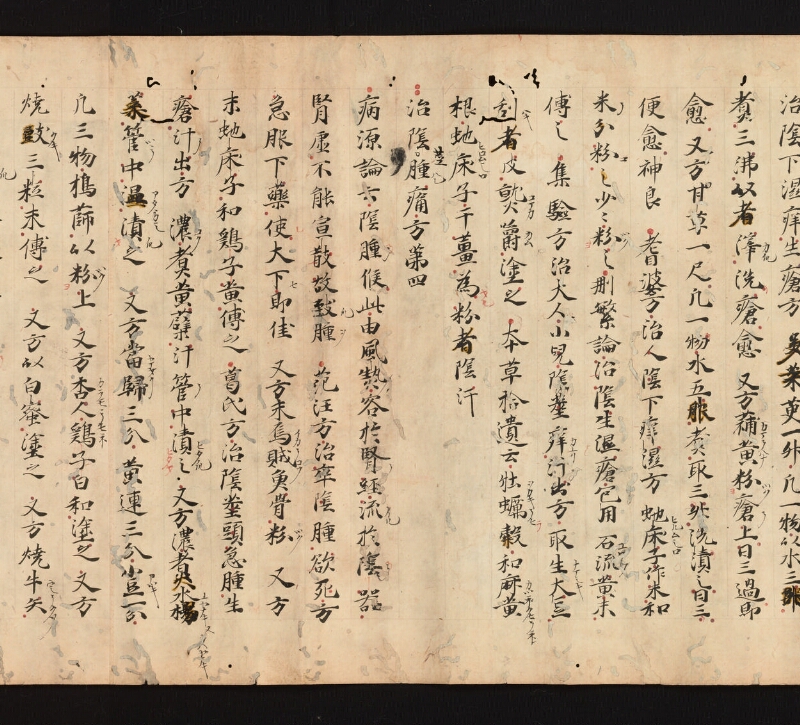 治陰下湿痒生瘡方 呉茱萸一升凡一物以水三升
煮三沸以者滓洗瘡愈 又方蒲黄粉瘡上日三過即
愈 又方甘草一尺凡一物水五升煮取三升洗漬之日三
便愈神良 耆婆方治人陰下痒湿方 虵床子作末和
米分粉之少々粉之 刪繁論治陰生湿瘡疱用石流黄末
傅之 集驗方治大人小児陰莖痒汁出方 取生大豆
刮者皮熨爵塗之 本草拾遺云牡蠣㲉和麻黄
根虵床子干薑為粉者陰汗
治陰莖腫痛方第四
病源論云陰腫候此由風熱客於腎経流於陰器
腎虚不能宣散故致腫 范汪方治卒陰腫欲死方
急服下藥使大下即佳 又方末烏賊魚骨粉 又方
末虵床子和鶏子黄傅之 葛氏方治陰莖頭急腫生
瘡汁出方 濃煮黄蘗汁管中漬之 又方濃煮水楊
葉管中温漬之 又方當歸三分黄連三分小豆一分
凡三物搗篩以粉上 又方杏人鶏子白和塗之 又方
焼豉三粒末傅之 又方以白蜜塗之 又方焼牛矢